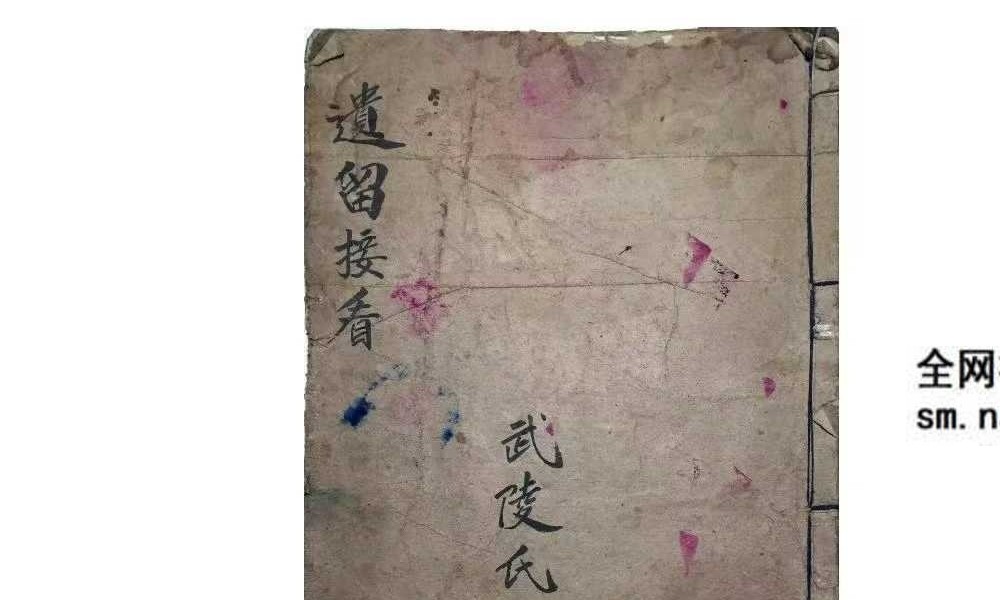 遺留接看
武陵氏
全网
sm.n